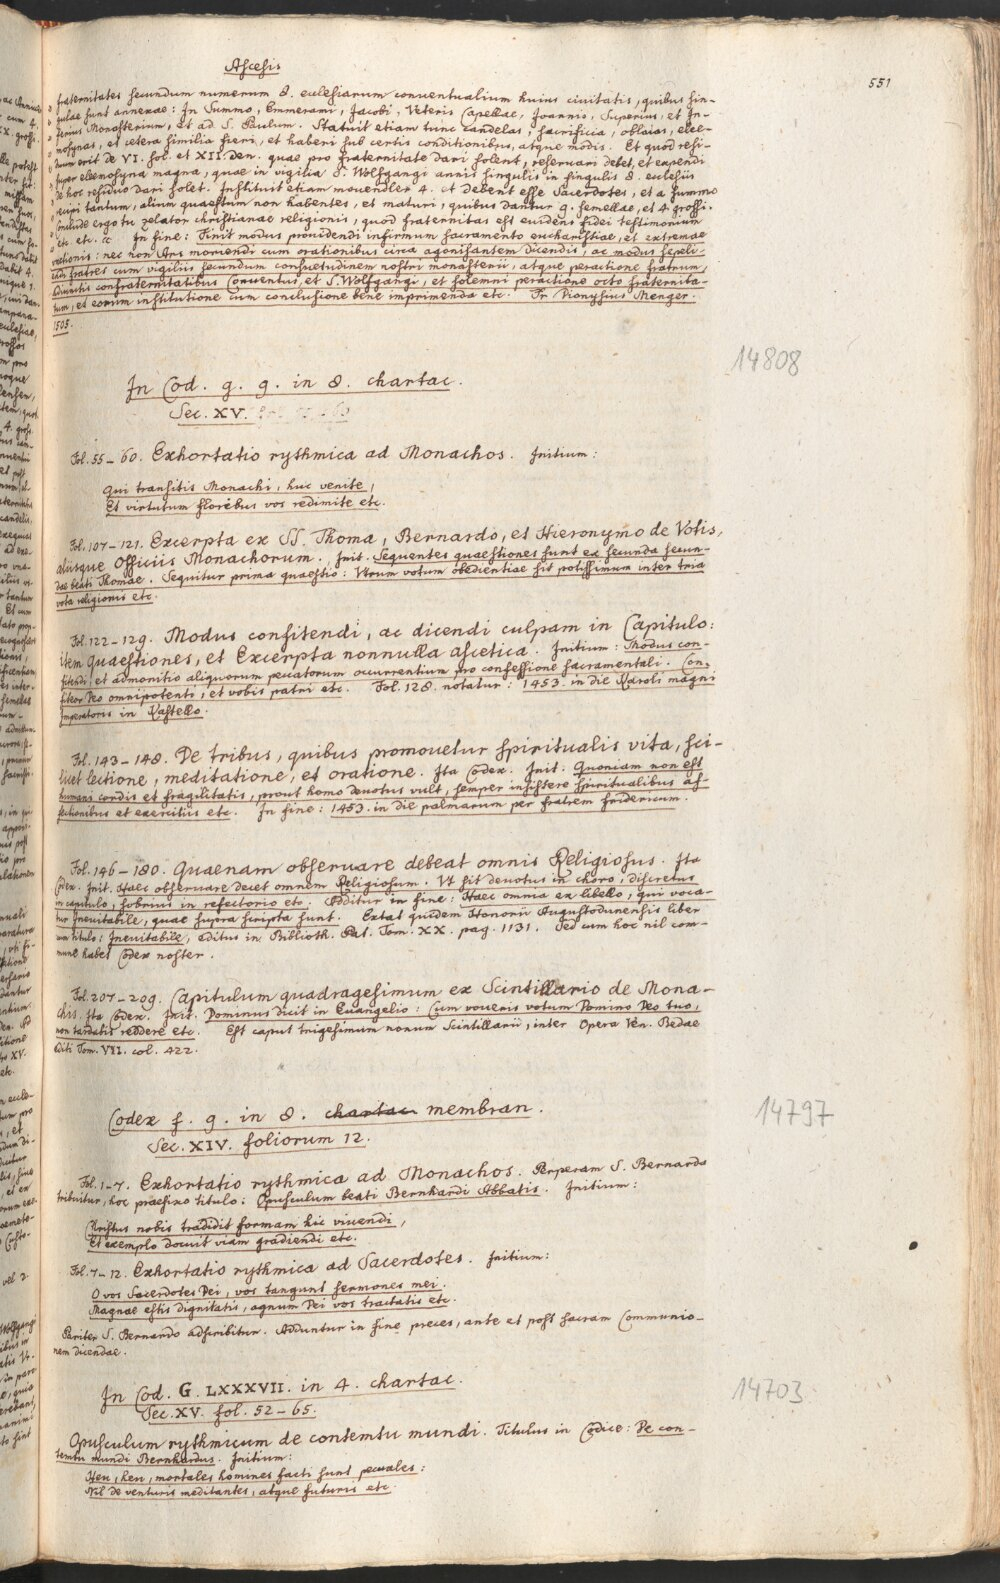 Ascesis
551
fraternitates secundum numerum 8. ecclesiarum conventualium huius civitatis, quibus sin-
gulae sunt annexae: In Summo, Emmerami, Jacobi, Veteris Capellae, Joannis, Superius, et In-
ferius Monasterium, et ad S. Paulum. Statuit etiam tunc candelas, sacrificia, oblaias, elee-
mosynas, et cetera similia fieri, et haberi sub certis conditionibus, atque modis. Et quod resi-
duum erit de VI. sol. et XII. den. quae pro fraternitate dari solent, reservari debet, et expendi
super eleemosyna magna, quae in vigilia S. Wolfgangi annis singulis in singulis 8. ecclesiis
de hoc residuo dari solet. Instituit etiam movendler 4. et debent esse Sacerdotes, et a Summo
accipi tantum, alium quaestum non habentes, et maturi, quibus dantur g. semellae, et 4. grossi.
Conclude ergo tu zelator christianae religionis, quod fraternitas est evidens fidei testimonium
etc. etc. In fine: Finit modus providendi infirmum sacramento eucharistiae, et extremae
unctionis: nec non Ars moriendi cum orationibus circa agonisantem dicendis, ac modus sepeli-
endi fratres cum vigiliis secundum consuetudinem nostri monasterii, atque peractione fratrum,
Divinitis confraternitatibus Conventus, et S. Wolfgangi, et solemni peractione octo fraternita-
tum, et eorum institutione cum conclusione bene imprimenda etc. Fr. Dionysius Menger.
1505.
14808
In Cod. g. g. in 8. chartac.
Sec. XV.
Fol. 55–60. Exhortatio rythmica ad Monachos. Initium:
Qui transitis Monachi, huc venite,
Et virtutum floribus vos redimite etc.
Fol. 107–121. Excerpta ex SS. Thoma, Bernardo, et Hieronymo de Votis,
aliisque Officiis Monachorum. Init. Sequentes quaestiones sunt ex secunda secun-
dae beati Thomae. Sequitur prima quaestio: Utrum votum obedientiae sit potissimum inter tria
vota religionis etc.
Fol. 122–129. Modus confitendi, ac dicendi culpam in Capitulo:
item Quaestiones, et Excerpta nonnulla ascetica. Initium: Modus con-
fitendi, et admonitio aliquorum peccatorum occurrentium pro confessione sacramentali. Con-
fiteor Deo omnipotenti, et vobis patri etc. Fol. 128. notatur: 1453. in die Karoli magni
Imperatoris in Kastello.
Fol. 143–148. De tribus, quibus promovetur spiritualis vita, sci-
licet lectione, meditatione, et oratione. Ita Codex. Init: Quoniam non est
humani cordis et fragilitatis, prout homo devotus vult, semper insistere spiritualibus af-
fectionibus et exercitiis etc. In fine: 1453. in die palmarum per fratrem fridericum.
Fol. 146–180. Quaenam observare debeat omnis Religiosus. Ita
Codex. Init. Haec observare decet omnem Religiosum. Ut sit devotus in choro, discretus
in capitulo, sobrius in refectorio etc. Additur in fine: Haec omnia ex libello, qui voca-
tur Inevitabile, quae supra scripta sunt. Extat quidem Honorii Augustodunensis liber
cum titulo: Inevitabile, editus in Biblioth. Pat. Tom. XX. pag. 1131. Sed cum hoc nil com-
mune habet Codex noster.
Fol. 207–209. Capitulum quadragesimum ex Scintillario de Mona-
chis. Ita Codex. Init. Dominus dicit in Euangelio: Cum voveris votum Domino Deo tuo,
non tardabis reddere etc. Est caput trigesimum nonum Scintillarii, inter Opera Ven. Bedae
editi Tom. VII. col. 422.
14797
Codex f. g. in 8. chartac membran.
Sec. XIV. foliorum 12.
Fol. 1–7. Exhortatio rythmica ad Monachos. Perperam S. Bernardo
tribuitur, hoc praefixo titulo: Opusculum beati Bernhardi Abbatis. Initium:
Christus nobis tradidit formam hic vivendi,
Et exemplo docuit viam gradiendi etc.
Fol. 7–12. Exhortatio rythmica ad Sacerdotes. Initium:
O vos Sacerdotes Dei, vos tangunt sermones mei.
Magnae estis dignitatis, agnum Dei vos tractatis etc.
Pariter S. Bernardo adscribitur. Adduntur in fine preces, ante et post sacram Communio-
nem dicendae.
14703
In Cod. G. LXXXVII. in 4. chartac.
Sec. XV. fol. 52–65.
Opusculum rythmicum de contemtu mundi. Titulus in Codice: De con-
temtu mundi Bernhardus. Initium:
Heu, heu, mortales homines facti sunt pecuales:
Nil de venturis meditantes, atque futuris etc.